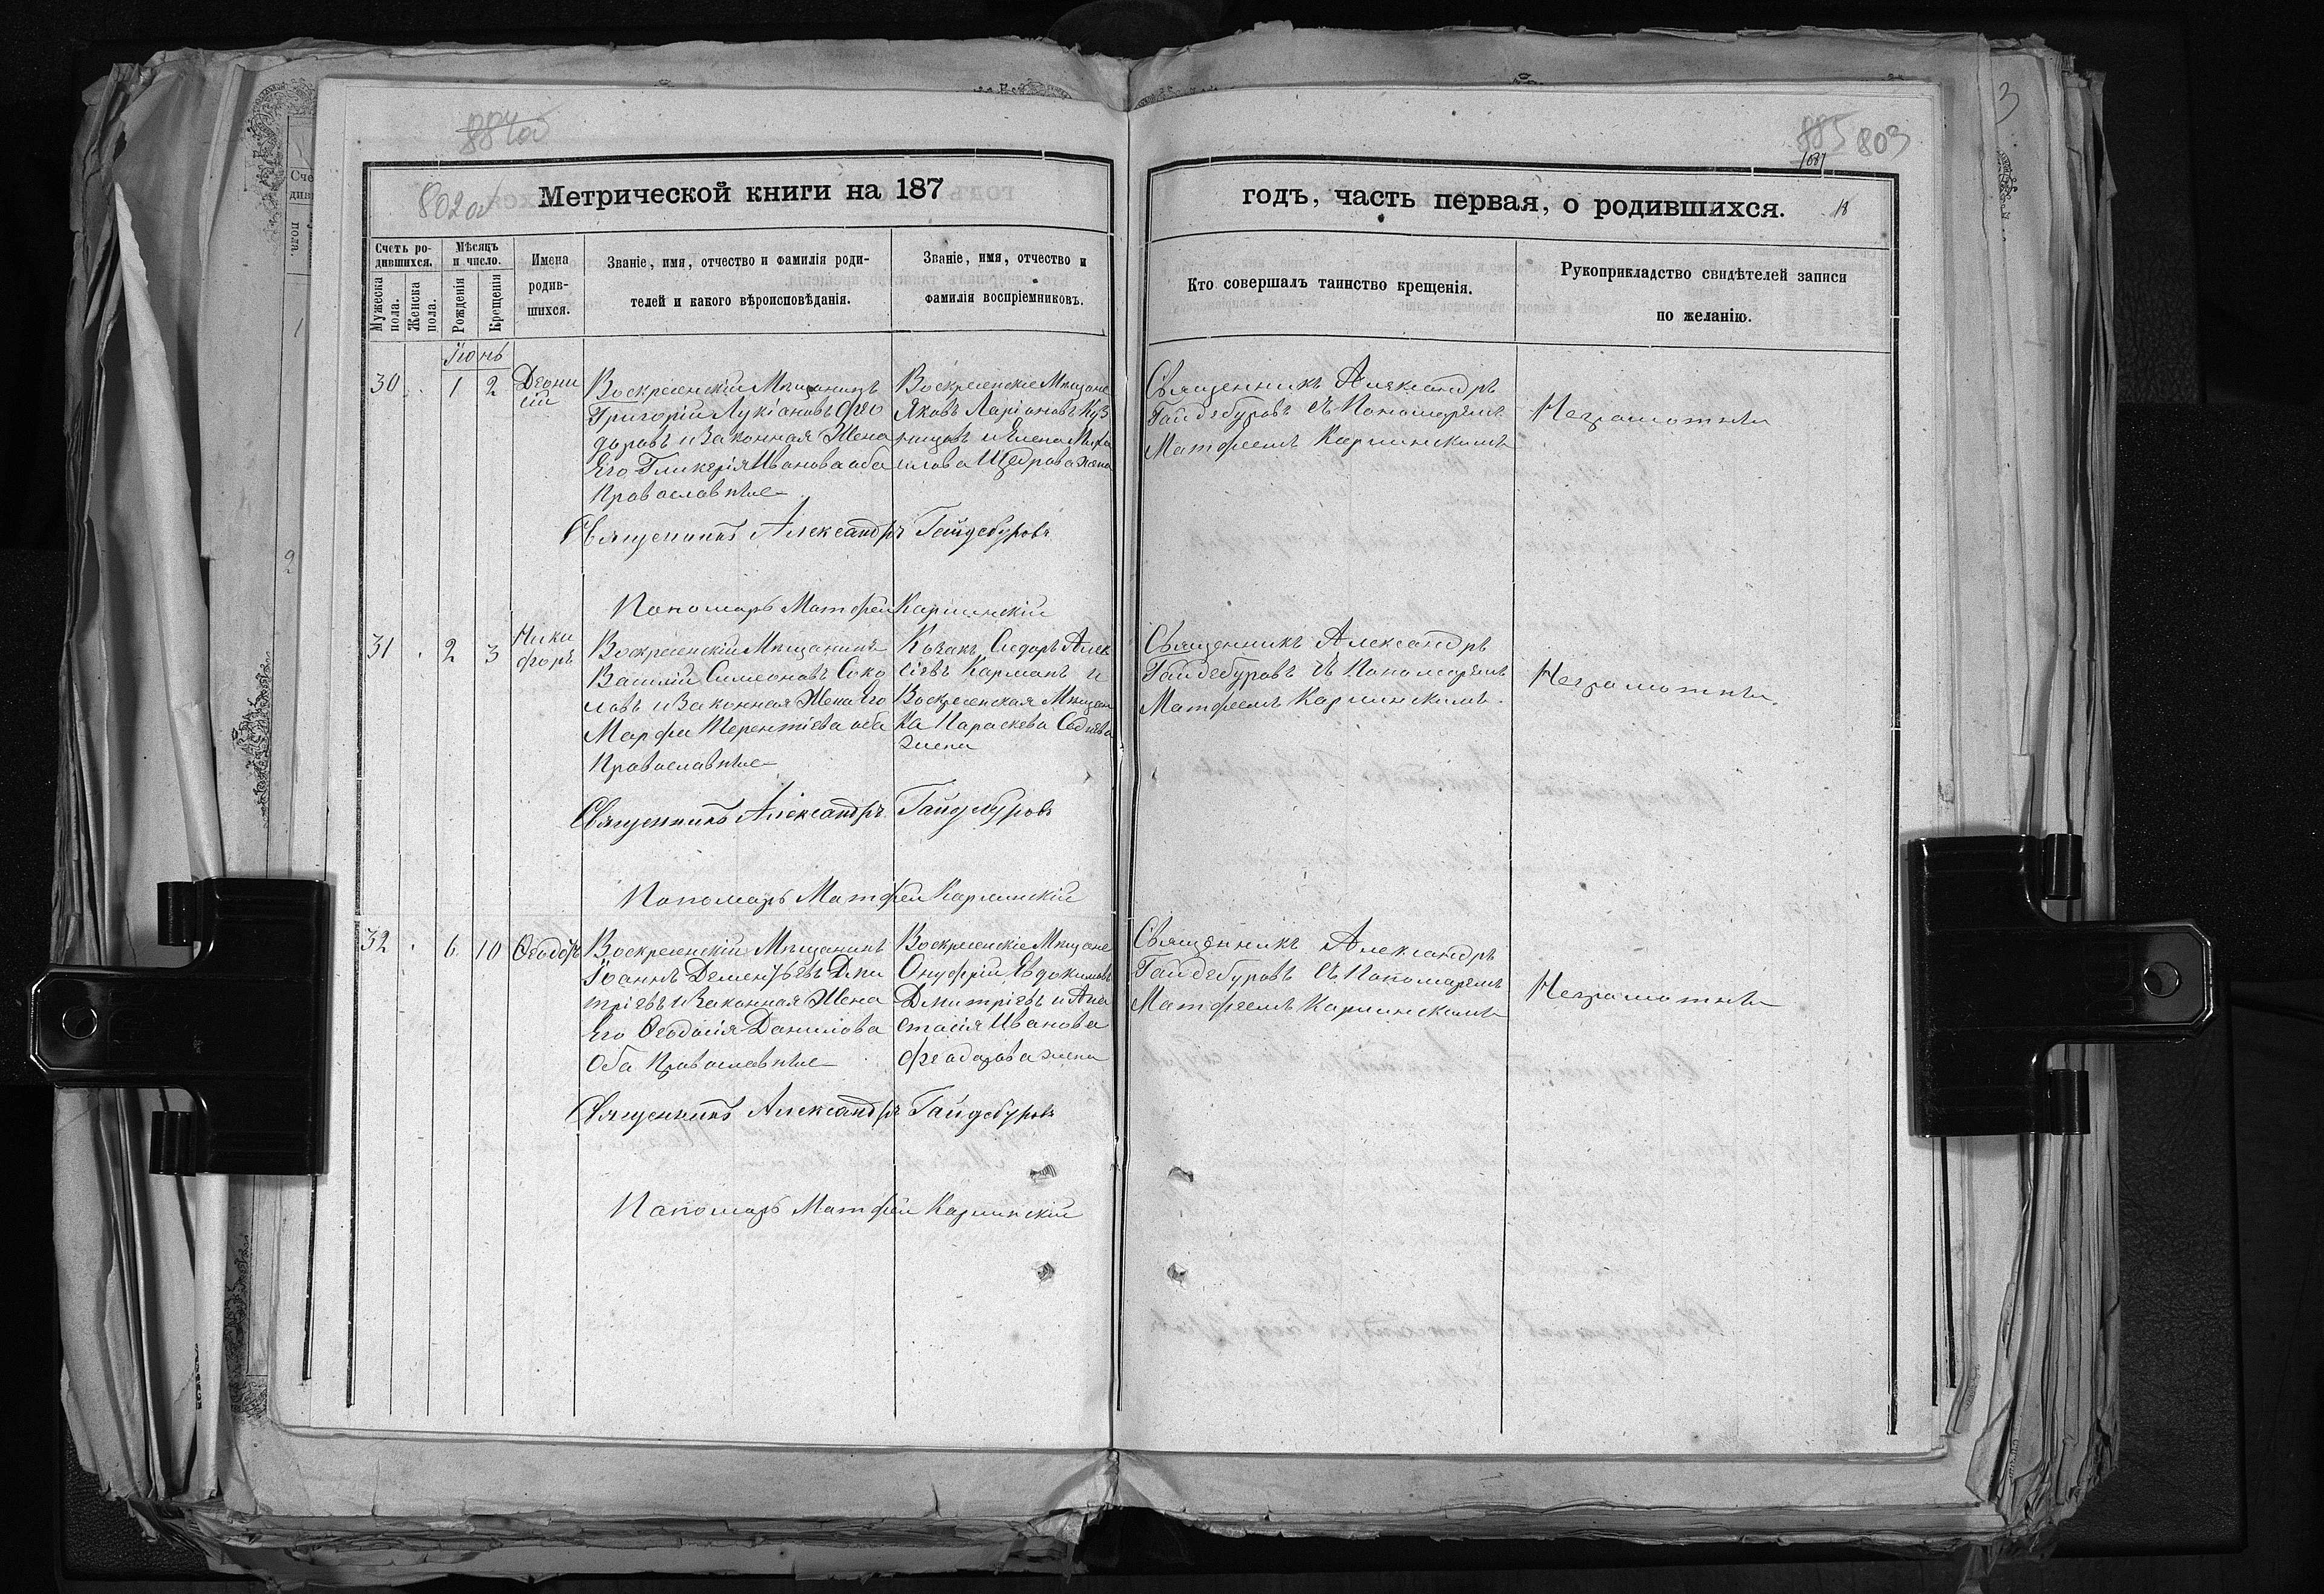 884об
802об Метрической книги на 187
Счетъ ро-
дившихся.
Мужеска пола.
Женска пола.
Мѣсяцъ
и число.
Рожденія
Крещенія
Имена
родив-
шихся.
Званіе, имя, отчество и фамилія роди-
телей и какого вѣроисповѣданія.
Званіе, имя, отчество и
фамилія воспріемниковъ.
Іюнь
30 1 2
Деони
сій
Воскресенскій Мѣщанинъ
Григорій Лукіановъ Фео
доровъ и Законная Жена
Его Гликерія Иванова оба
Православные
Воскресенскіе Мѣщане
Яковъ Ларіоновъ Куз
нецовъ и Елена Миха
илова Щедрова жена
Священникъ Александръ Гайдебуровъ
Пономарь Матфей Карминскій
31 2 3
Ники
форъ
Воскресенскій Мѣщанинъ
Василій Симеоновъ Соко
ловъ и Законная Жена Его
Марфа Терентіева оба
Православные
Козакъ Сидоръ Алек
сіевъ Карманъ и
Воскресенская Мѣщан
ка Параскева
жена
Священникъ Александръ Гайдебуровъ
Пономарь Матфей Карминскій
32 6 10 Ѳеодоръ
Воскресенскій Мѣщанинъ
Іоаннъ Дементьевъ Дми
тріевъ и Законная Жена
Его Ѳеодосія Данилова
Оба Православные
Воскресенскіе Мѣщане
Онуфрій Евдокимовъ
Дмитріевъ и Ана
стасія Иванова
Феодорова жена
Священникъ Александръ Гайдебуровъ
Пономарь Матфей Карминскій
885 803
1081
годъ, часть первая, о родившихся. 18
Кто совершалъ таинство крещенія.
Рукоприкладство свидѣтелей записи
по желанію.
Священникъ Александръ
Гайдебуровъ съ Пономаремъ
Матфеемъ Карминскимъ
Неграмотны
Священникъ Александръ
Гайдебуровъ съ Пономаремъ
Матфеемъ Карминскимъ.
Неграмотны
Священникъ Александръ
Гайдебуровъ съ Пономаремъ
Матфеемъ Карминскимъ
Неграмотны